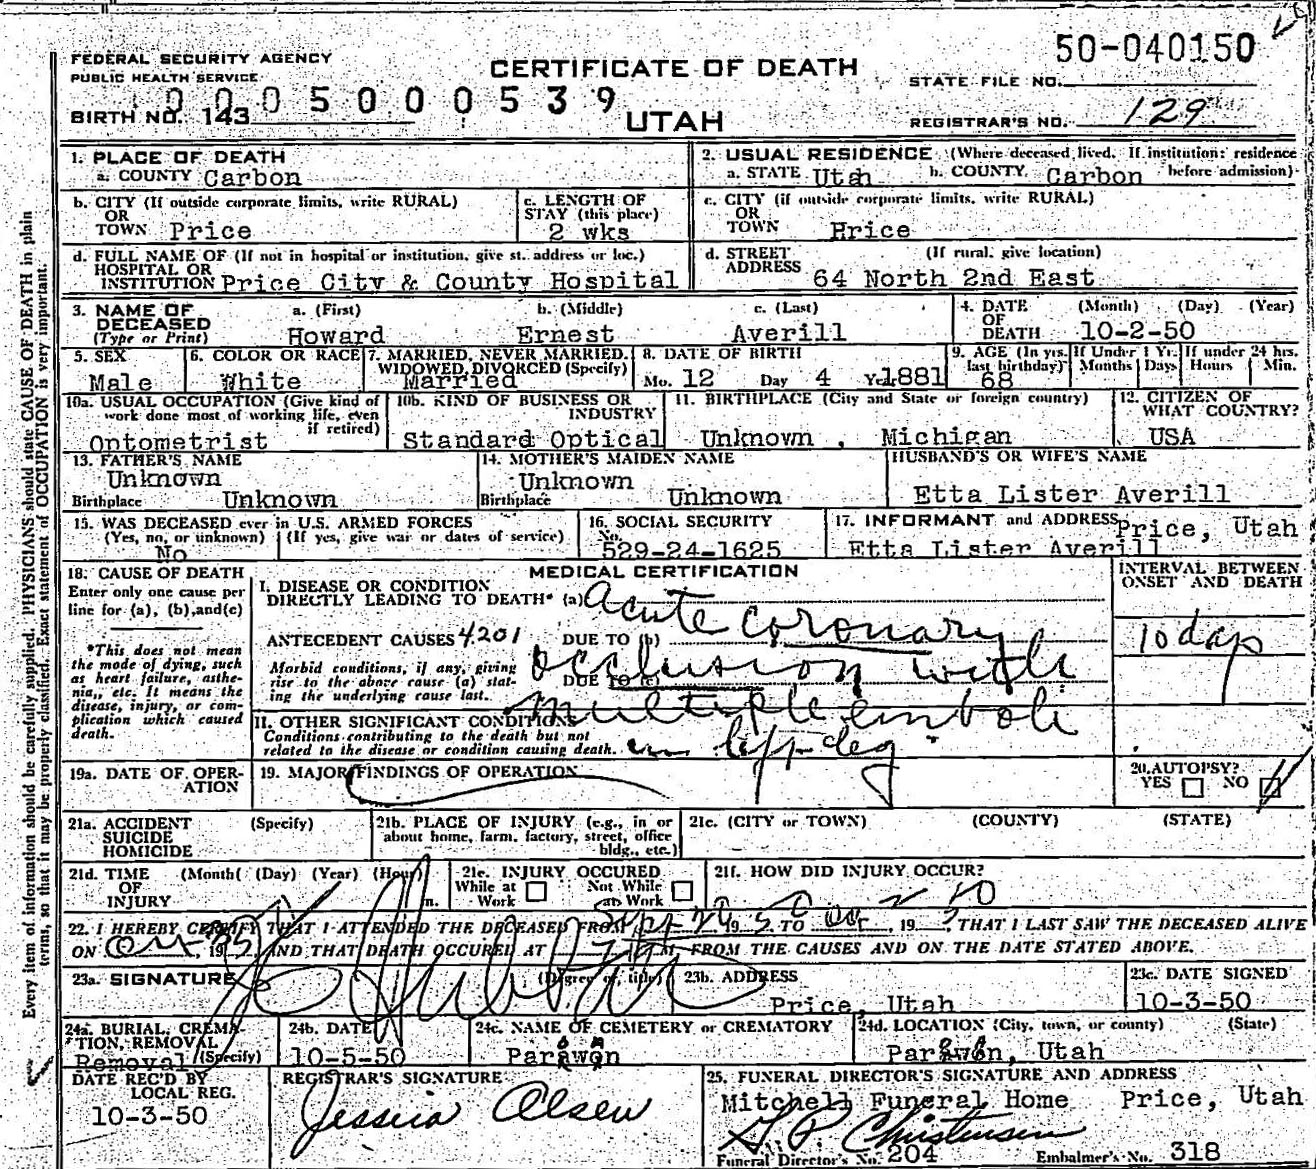 50-040150
FEDERAL SECURITY AGENCY
PUBLIC HEALTH SERVICE
CERTIFICATE OF DEATH
STATE FILE NO.
0005000539
BIRTH NO. 143
UTAH
REGISTRAR'S NO. 129
1. PLACE OF DEATH
a. COUNTY Carbon
2. USUAL RESIDENCE (Where deceased lived. If institution: residence before admission)
a. STATE Utah b. COUNTY Carbon
b. CITY (If outside corporate limits, write RURAL)
OR
TOWN Price
c. LENGTH OF
STAY (this place)
2 wks
c. CITY (if outside corporate limits, write RURAL)
OR
TOWN Hrice
d. FULL NAME OF (If not in hospital or institution, give st. address or loc.)
HOSPITAL OR
INSTITUTION Price City & County Hospital
d. STREET (If rural, give location)
ADDRESS 64 North 2nd East
3. NAME OF a. (First) b. (Middle) c. (Last)
DECEASED
(Type or Print) Howard Ernest Averill
4. DATE (Month) (Day) (Year)
OF
DEATH 10-2-50
5. SEX
Male
6. COLOR OR RACE
White
7. MARRIED, NEVER MARRIED,
WIDOWED, DIVORCED (Specify)
Married
8. DATE OF BIRTH
Mo. 12 Day 4 Year 1881
9. AGE (In yrs. last birthday)
68
If Under 1 Yr.
Months Days
If under 24 hrs.
Hours Min.
10a. USUAL OCCUPATION (Give kind of
work done most of working life, even
if retired)
Ontometrist
10b. KIND OF BUSINESS OR
INDUSTRY
Standard Optical
11. BIRTHPLACE (City and State or foreign country)
Unknown , Michigan
12. CITIZEN OF
WHAT COUNTRY?
USA
13. FATHER'S NAME
Unknown
Birthplace Unknown
14. MOTHER'S MAIDEN NAME
Unknown
Birthplace Unknown
HUSBAND'S OR WIFE'S NAME
Etta Lister Averill
15. WAS DECEASED ever in U.S. ARMED FORCES
(Yes, no, or unknown) (If yes, give war or dates of service)
No
16. SOCIAL SECURITY
No.
529-24-1625
17. INFORMANT and ADDRESS Price, Utah
Etta Lister Averill
18. CAUSE OF DEATH
Enter only one cause per
line for (a), (b),and(c)
*This does not mean
the mode of dying, such
as heart failure, asthe-
nia,, etc. It means the
disease, injury, or com-
plication which caused
death.
MEDICAL CERTIFICATION
I. DISEASE OR CONDITION
DIRECTLY LEADING TO DEATH* (a) Acute coronary
ANTECEDENT CAUSES 4201 DUE TO (b)
Morbid conditions, if any, giving
rise to the above cause (a) stat-
ing the underlying cause last.
occlusion with
DUE TO (c)
multiple emboli
II. OTHER SIGNIFICANT CONDITIONS
Conditions contributing to the death but not
related to the disease or condition causing death.
in left leg
INTERVAL BETWEEN
ONSET AND DEATH
10 days
19a. DATE OF OPER-
ATION
19. MAJOR FINDINGS OF OPERATION
20. AUTOPSY?
YES NO
21a. ACCIDENT (Specify)
SUICIDE
HOMICIDE
21b. PLACE OF INJURY (e.g., in or
about home, farm, factory, street, office
bldg., etc.)
21c. (CITY or TOWN) (COUNTY) (STATE)
21d. TIME (Month( (Day) (Year) (Hour)
OF
INJURY m.
21e. INJURY OCCURED
While at Work Not While at Work
21f. HOW DID INJURY OCCUR?
22. I HEREBY CERTIFY THAT I ATTENDED THE DECEASED FROM Sept 19 50 TO Oct, 19 , THAT I LAST SAW THE DECEASED ALIVE
ON Oct, 19 , AND THAT DEATH OCCURED AT M. FROM THE CAUSES AND ON THE DATE STATED ABOVE.
23a. SIGNATURE (Degree or title)
23b. ADDRESS
Price, Utah
23c. DATE SIGNED
10-3-50
24a. BURIAL, CREMA-
TION, REMOVAL
Removal (Specify)
24b. DATE
10-5-50
24c. NAME OF CEMETERY or CREMATORY
Parowan
24d. LOCATION (City, town, or county) (State)
Parowan, Utah
DATE REC'D BY
LOCAL REG.
10-3-50
REGISTRAR'S SIGNATURE
Jessica Olsen
25. FUNERAL DIRECTOR'S SIGNATURE AND ADDRESS
Mitchell Funeral Home Price, Utah
Christensen
Funeral Director's No. 204 Embalmer's No. 318
Every item of information should be carefully supplied. PHYSICIANS should state CAUSE OF DEATH in plain
terms, so that it may be properly classified. Exact statement of OCCUPATION is very important.